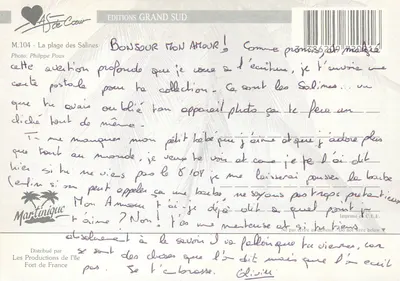 As de Cœur
EDITIONS GRAND SUD
M.104 - La plage des Salines
Photo Philippe Poux
BONJOUR MON AMOUR! Comme promise et malgré
cette aversion profonde que je voue à l'écriture, je t'envoie une
carte postale pour ta collection. Ce sont les Salines... vu
que tu avais oublié ton appareil photo ça te fera un
cliché tout de même.
Tu me manques mon petit bébé que j'aime et que j'adore plus
que tout au monde. je veux te voir et comme je te l'ai dit
hier si tu ne viens pas le 8/08 je me laisserai pousser la barbe
(enfin si on peut appeler ça une barbe, ne soyons pas trop prétentieux
Mon Amour t'ai-je déjà dit à quel point je
t'aime? Non! t'es une menteuse et si tu tiens
absolument à le savoir il va falloir que tu viennes, car
ce sont des choses que l'on dit mais que l'on écrit
pas. Je t'embrasse. Olivier
Martinique
Distribué par
Les Productions de l'Ile
Fort de France